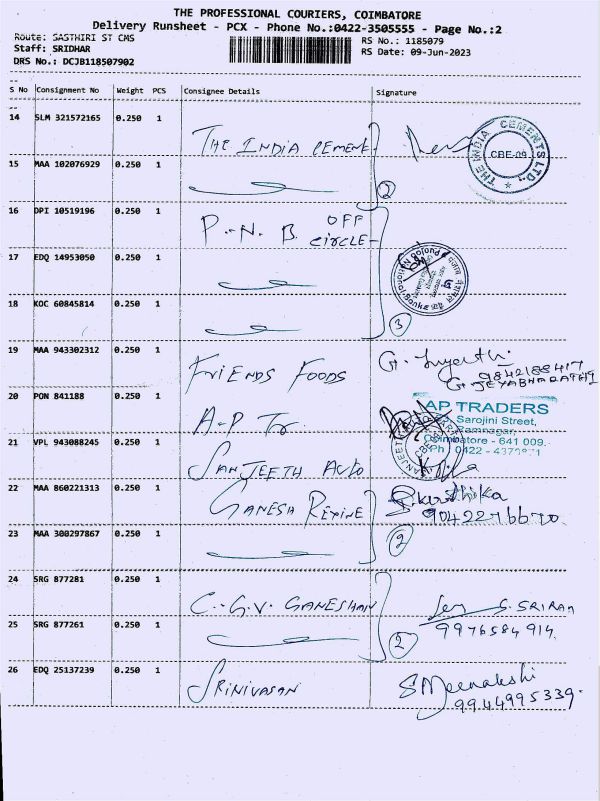 THE PROFESSIONAL COURIERS, COIMBATORE
Delivery Runsheet - PCX - Phone No.:0422-3505555 - Page No.:2
Route: SASTHIRI ST CMS
RS No.: 1185079
Staff: SRIDHAR
RS Date: 09-Jun-2023
DRS No.: DCJB118507902
S No Consignment No Weight PCS Consignee Details Signature
14 SLM 321572165 0.250 1 THE INDIA CEMENT
THE INDIA CEMENTS LTD.,
CBE-09
15 MAA 102076929 0.250 1
2
16 DPI 10519196 0.250 1 P.N.B. OFF CIRCLE
17 EDQ 14953050 0.250 1
18 KOC 60845814 0.250 1
3
19 MAA 943302312 0.250 1 FRIENDS FOODS
9842188417
G. JEYABHARATHI
20 PON 841188 0.250 1 A-P Tr
AP TRADERS
Sarojini Street,
Ramnagar,
Coimbatore - 641 009.
Ph : 0422 -
21 VPL 943088245 0.250 1 SANJEETH AUTO
22 MAA 860221313 0.250 1 GANESH REXINE
9042276670
23 MAA 300297867 0.250 1
2
24 SRG 877281 0.250 1 C.G.V. GANESHAN
S. SRIRAM
9976584914
25 SRG 877261 0.250 1
2
26 EDQ 25137239 0.250 1 SRINIVASAN
S Meenakshi
9944995339